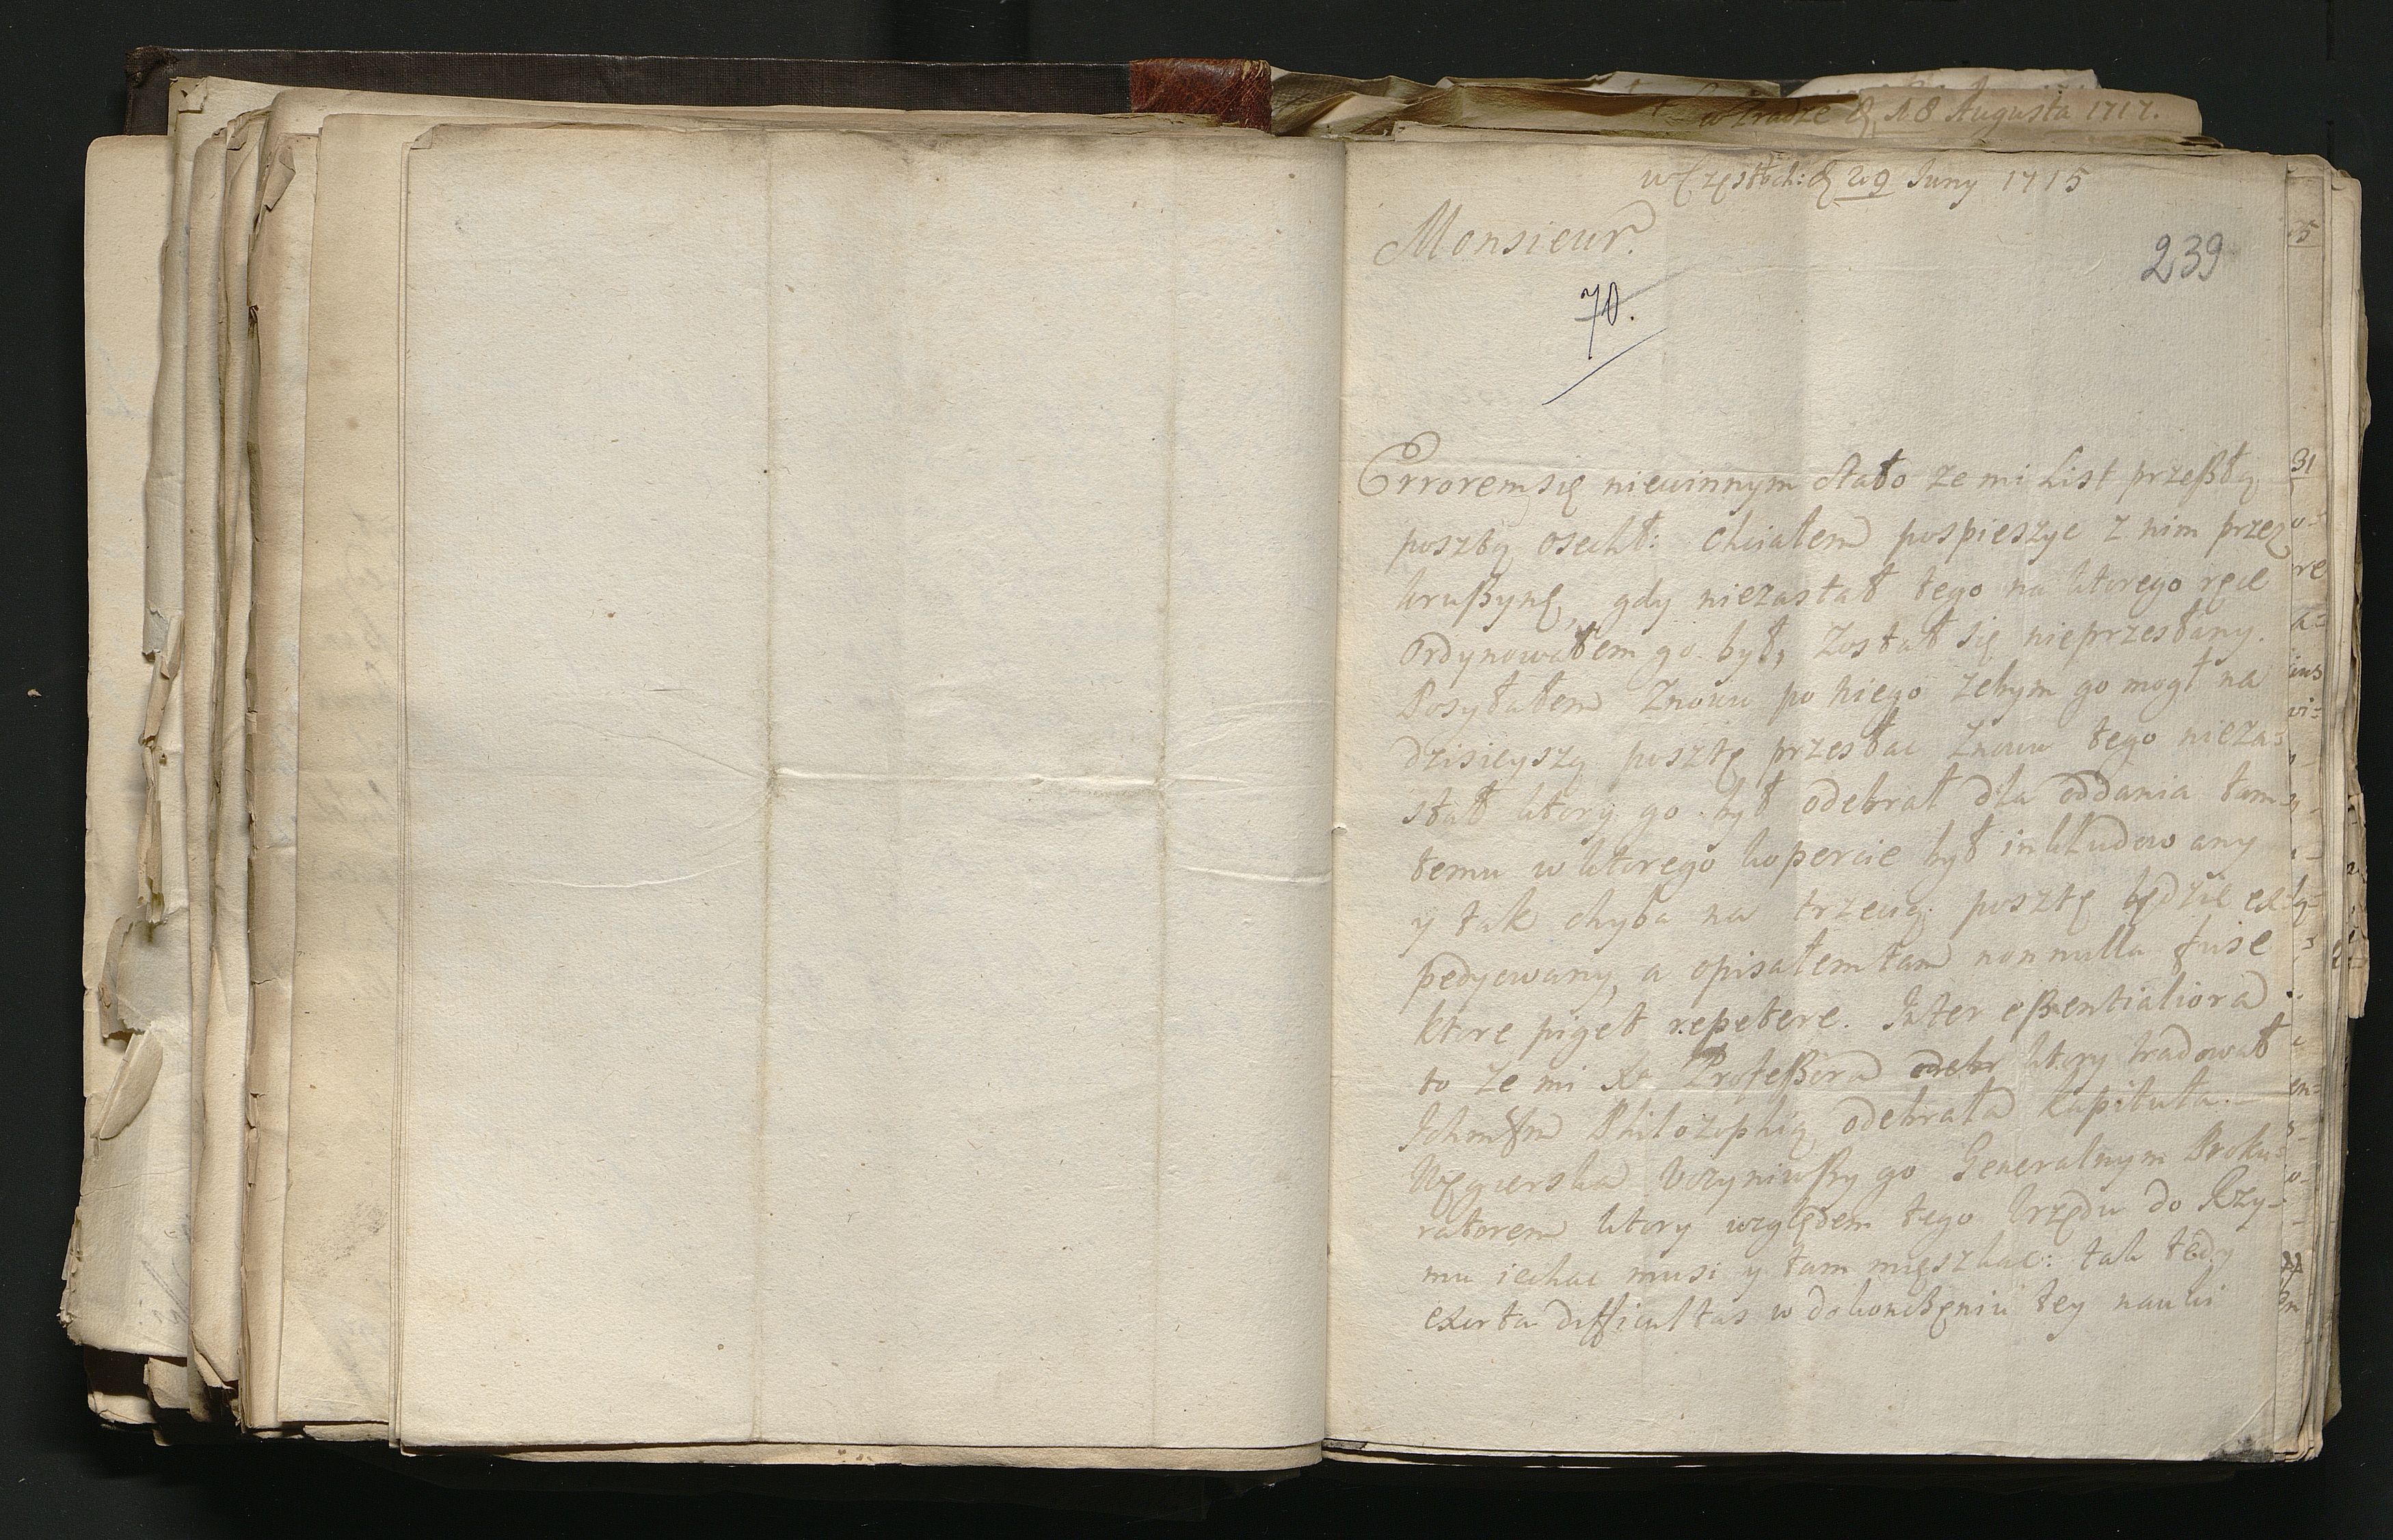 w Pradze d. 18 Augusta 1717.
w Częstoch: d 29 Juny 1715
Monsieur.
239
70.
Errorem się niewinnym stało ze mi List przeßłą
posztą osechł: chciałem pospieszyc z nim przez
krußynę, gdy niezastał tego na ktorego ręce
Ordynowałem go był, Został się nieprzesłany.
Posyłałem Znowu po niego zebym go mogł na
dzisieyszą posztę przesłac Znowu tego nieza=
stał ktory go był odebrał dla oddania tam=
temu w ktorego kopercie był inkludowany
y tak chyba na trzecią posztę będzie ex=
pedyowany, a opisałem tam non nulla fuse
ktore piget repetere. Inter eßentialiora
to ze mi Xa Profeßora odebr ktory tradował
Ichmſm Philozophią odebrała Kapituła.
Węgierska Uczyniwßy go Generalnym Proku=
ratorem ktory względem tego Urzędu do Rzy=
mu iechac musi y tam męszkac: tak tedy
exorta difficultas w dokonczęniu tey nauki